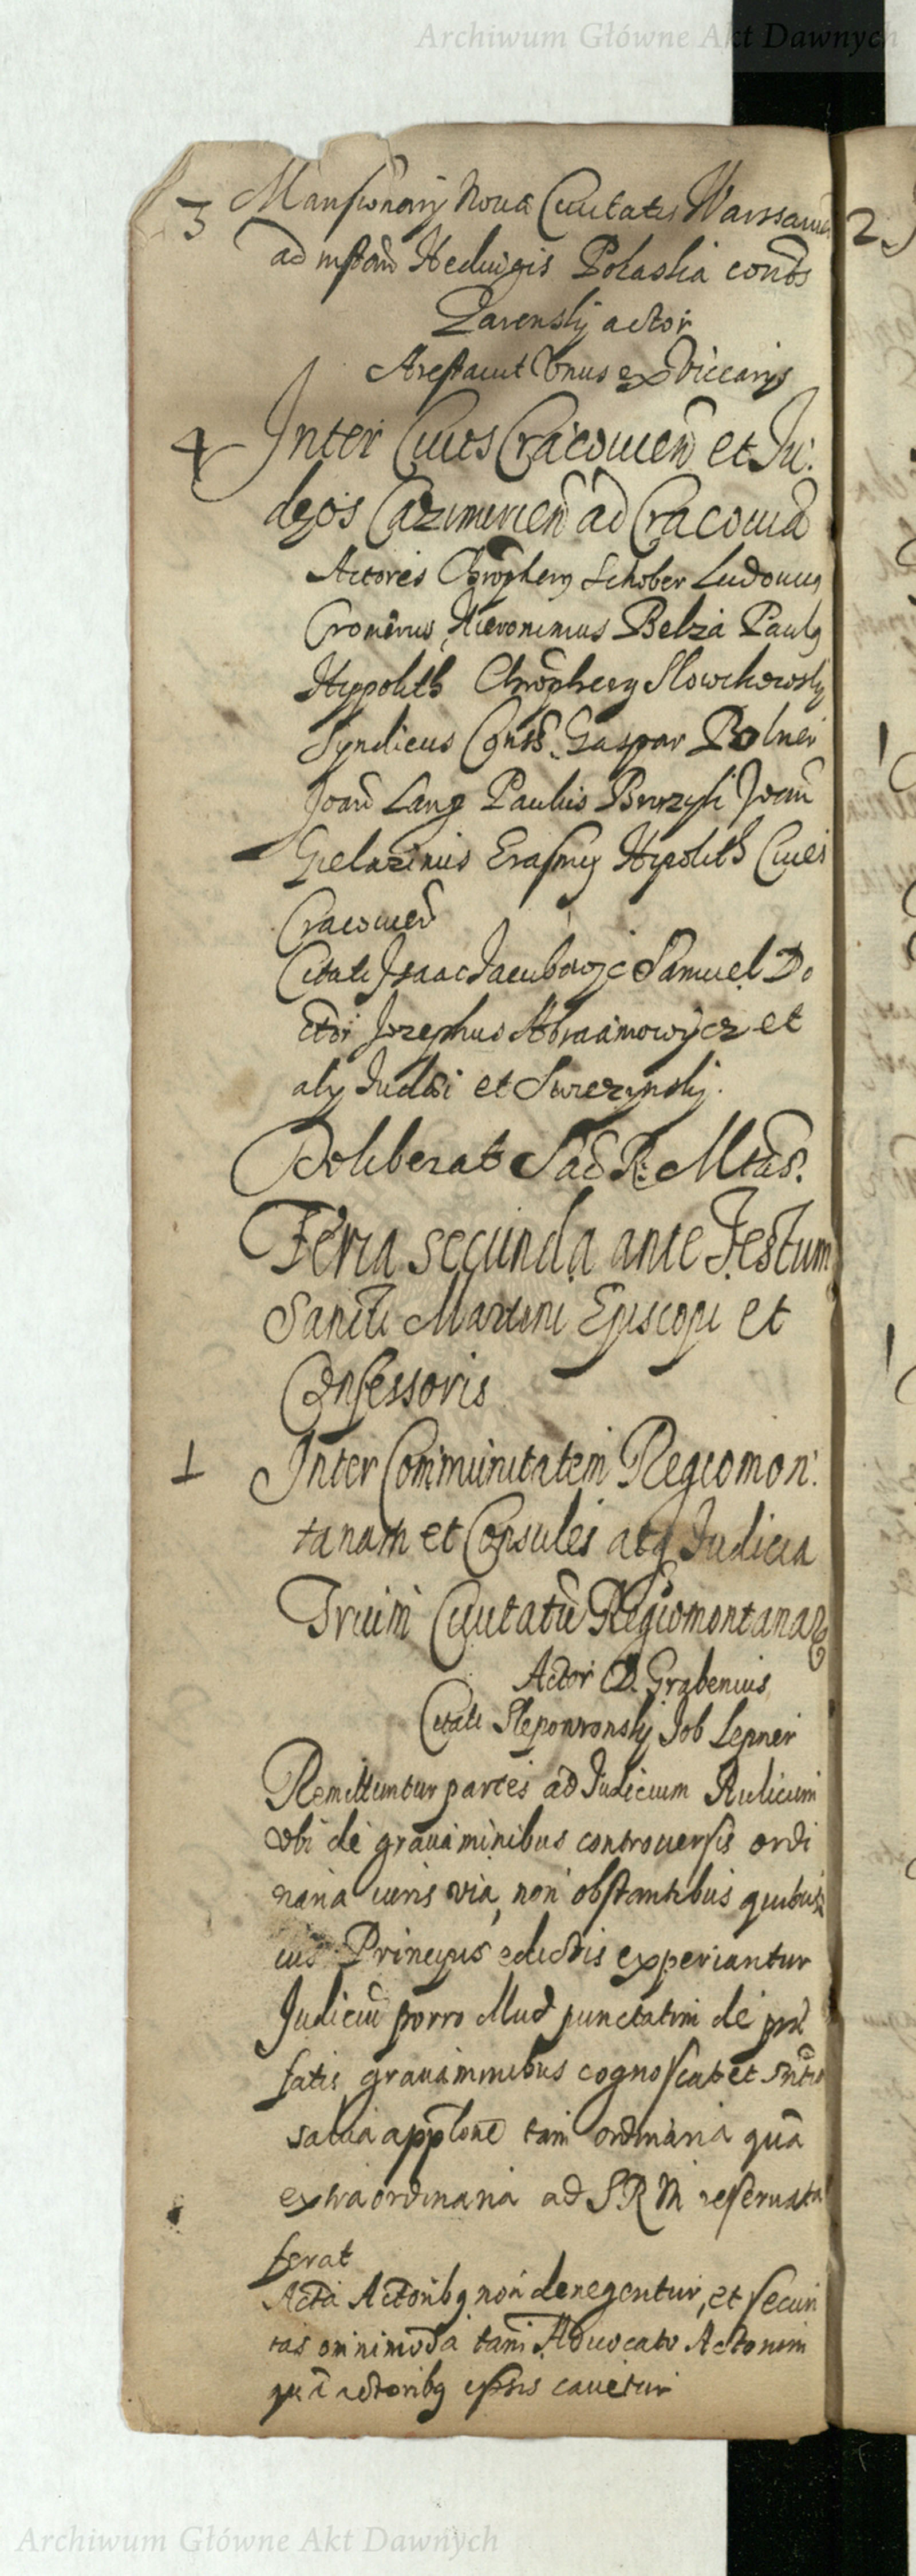 Archiwum Główne Akt Dawnych
3 Mansionarij Noua Ciuitatis Warsauie
2
ad instan Heduigis Polaska cont
Zarenskij actor
Arestauit Vnus ex Viccarijs
4 Inter Ciues Cracouien et Iu:
deos Cazimirien ad Cracouia
Actores Chrophery Schober Ludouicus
Cromerus, Hieronimus Belza Paulq
Hyppolith Chrophery Slowikowskj
Syndicus Conss. Gaspar Polner
Joan Lang Paulus Joan
Gielazinus Erasmq Hypolith Ciues
Cracouien
Citati Isaac Jacubowjc Samuel Do
ctor Jozephus Abraamowÿcz et
alij Iudei et Swiezynskj.
Deliberat Sac R: Mtas.
Feria secunda ante Festum
Sancti Martini Episcopi et
Confessoris
1 Inter Communitatem Regiomon:
tanam et Consules atq Iudicia
Trium Ciuitatu Regiomontanar
Actor D. Grabenius
Citati Sleponronskj Iob Lepner
Remittuntur partes ad Iudicium Aulicum
vbi de grauaminibus controuersis ordi
naria iuris via, non obstantibus quibus
uis Principis edictis experiantur
Judiciu porro illud punctatim de præ
fatis grauaminibus cognoscat et sntia
salua applone tam ordinaria qua
extraordinaria ad SRM reseruata
ferat
Acta Actoribq non denegentur, et secur
tas omnimoda tam Aduocato Actorum
qua actoribq ipsis cauetur
Archiwum Główne Akt Dawnych